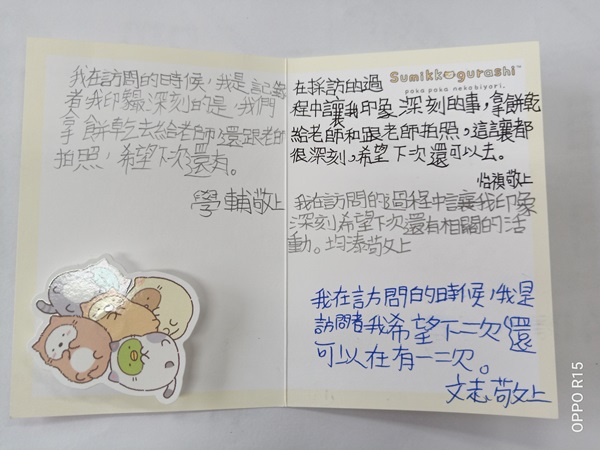 我在訪問的時候，我是記者
者我印象深刻的是，我們
拿餅乾去給老師，還跟老師
拍照，希望下次還有。
學輔敬上
Sumikkogurashi™
poka poka nekobiyori.
在採訪的過
程中讓我印象深刻的事，拿餅乾
給老師和跟老師拍照，這讓都
很深刻，希望下次還可以去。
敬上
我在訪問的過程中讓我印象
深刻希望下次還有相關的活
動。均溱敬上
我在訪問的時候，我是
訪問者我希望下二次還
可以在有一二次。
文志敬上
OPPO R15